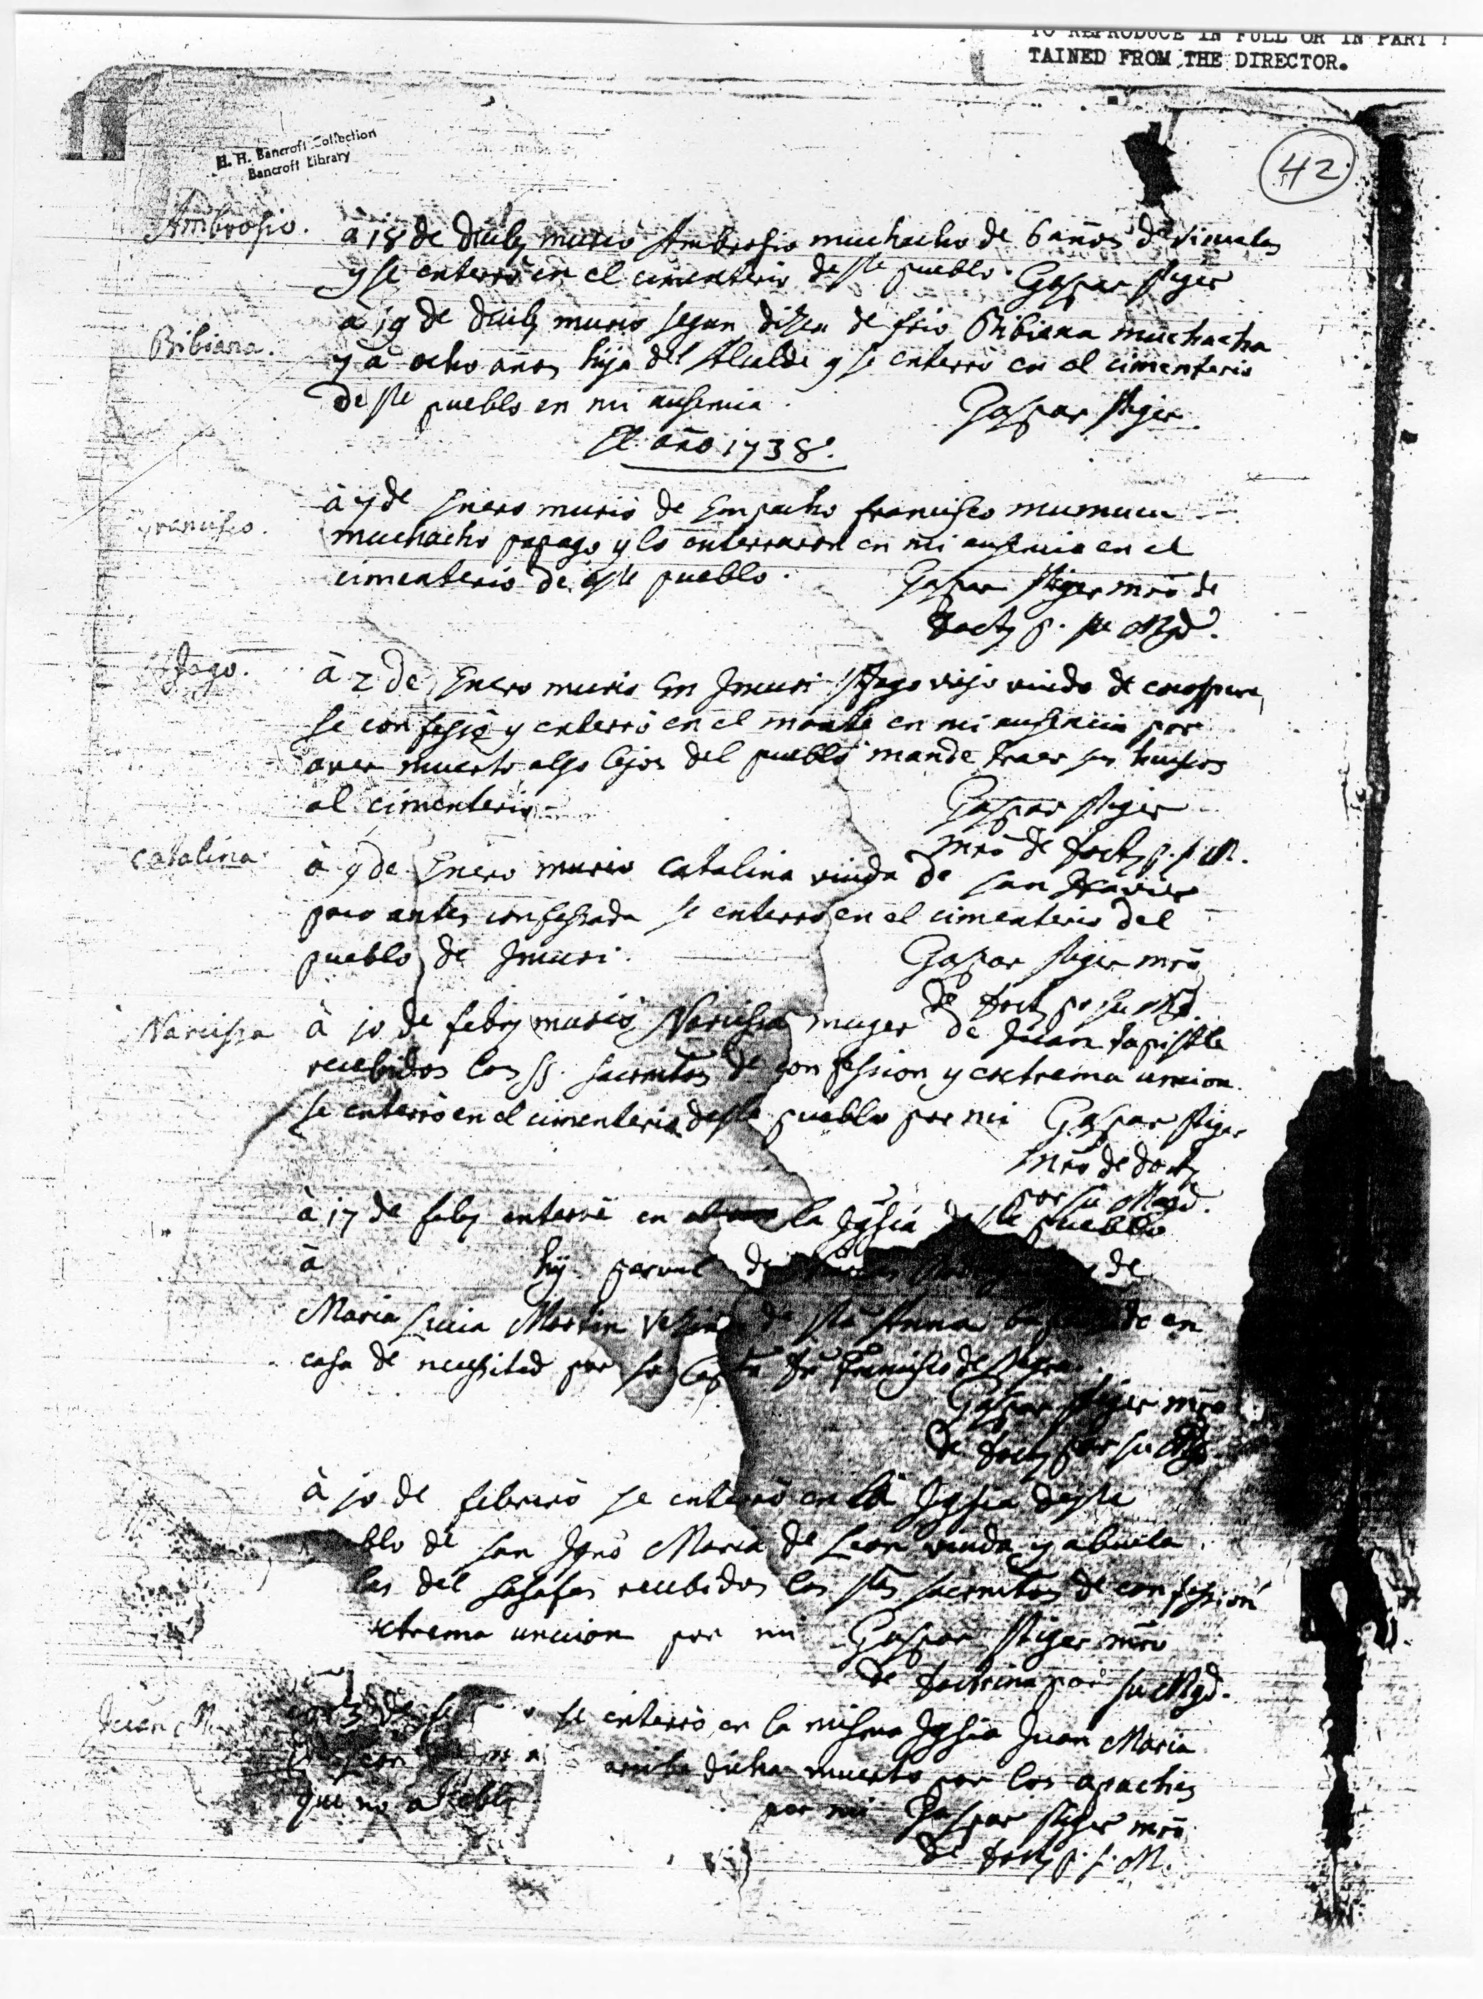 TO REPRODUCE IN FULL OR IN PART
TAINED FROM THE DIRECTOR.
H. H. Bancroft Collection
Bancroft Library
42
Ambrosio. à 18 de murio Ambrosio muchacho de 6 años de viruelas
y se enterrò en el cimenterio deste pueblo. Gaspar Stiger
Bibiana. à 19 de murio segun dizen de frio Bibiana muchacha
y à ocho años hija del Alcalde y se enterrò en el cimenterio
deste pueblo en mi ausencia. Gaspar Stiger
El año 1738.
Francisco. à 7 de Enero muriò de Empacho francisco mumucu
muchacho papago y lo enterraron en mi ausencia en el
cimenterio de este pueblo. Gaspar Stiger mrõ de
doctr p. su Mgd.
Stiago. à 2 de Enero murio Em Imuri Stiago viejo viudo de cocospera,
se confesiò y enterrò en el monte en mi ausencia por
aver muerto algo lejos del pueblo mande traer sus huesos
al cimenterio. Gaspar Stiger
mrõ de doctr p. s. M.
Catalina à 9 de Enero murio Catalina viuda de san Xavier
poco antes confessada se enterrò en el cimenterio del
pueblo de Imuri. Gaspar Stiger mrõ
de doctr por su Mgd.
Narcissa à 10 de febr murio Narcissa muger de Juan tapisque
recebidos los SS. sacrmtos de confession y extrema uncion
se enterrò en el cimenterio deste pueblo por mi Gaspar Stiger
mrõ de doctr
por su Magd.
à 17 de febr enterrè en la Iglsia deste pueblo
à hij parvul de de
Maria Lucia Martin de sta Anna en
casa de necessitad por Francisco de
Gaspar Stiger mrõ
de doctr por su Mgd.
à 10 de febrerò se enterrò en la Iglsia deste
blo de san Ignò Maria de Leon viuda y abuela
los del recebidos los stos sacrmtos de confession
extrema uncion por mi Gaspar Stiger mrõ
de doctrina por su Mgd.
Juan M se enterrò en la misma Iglsia Juan Maria
arriba dicha muerto por los apaches
que no por mi Gaspar Stiger mrõ
de doctr p. s. M.